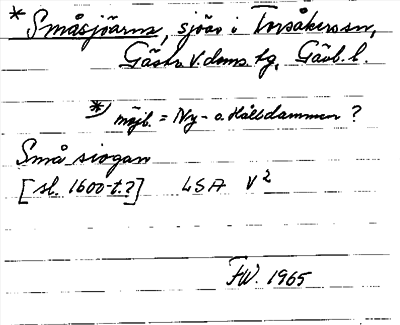 * Småsjöarna, sjöar i Torsåkers sn,
Gästr. V. doms. tg, Gävl. l.
*) möjl. = Ny- o. Hålldammen ?
Små siogan
[sl. 1600-t.?] LSA V2
FW. 1965